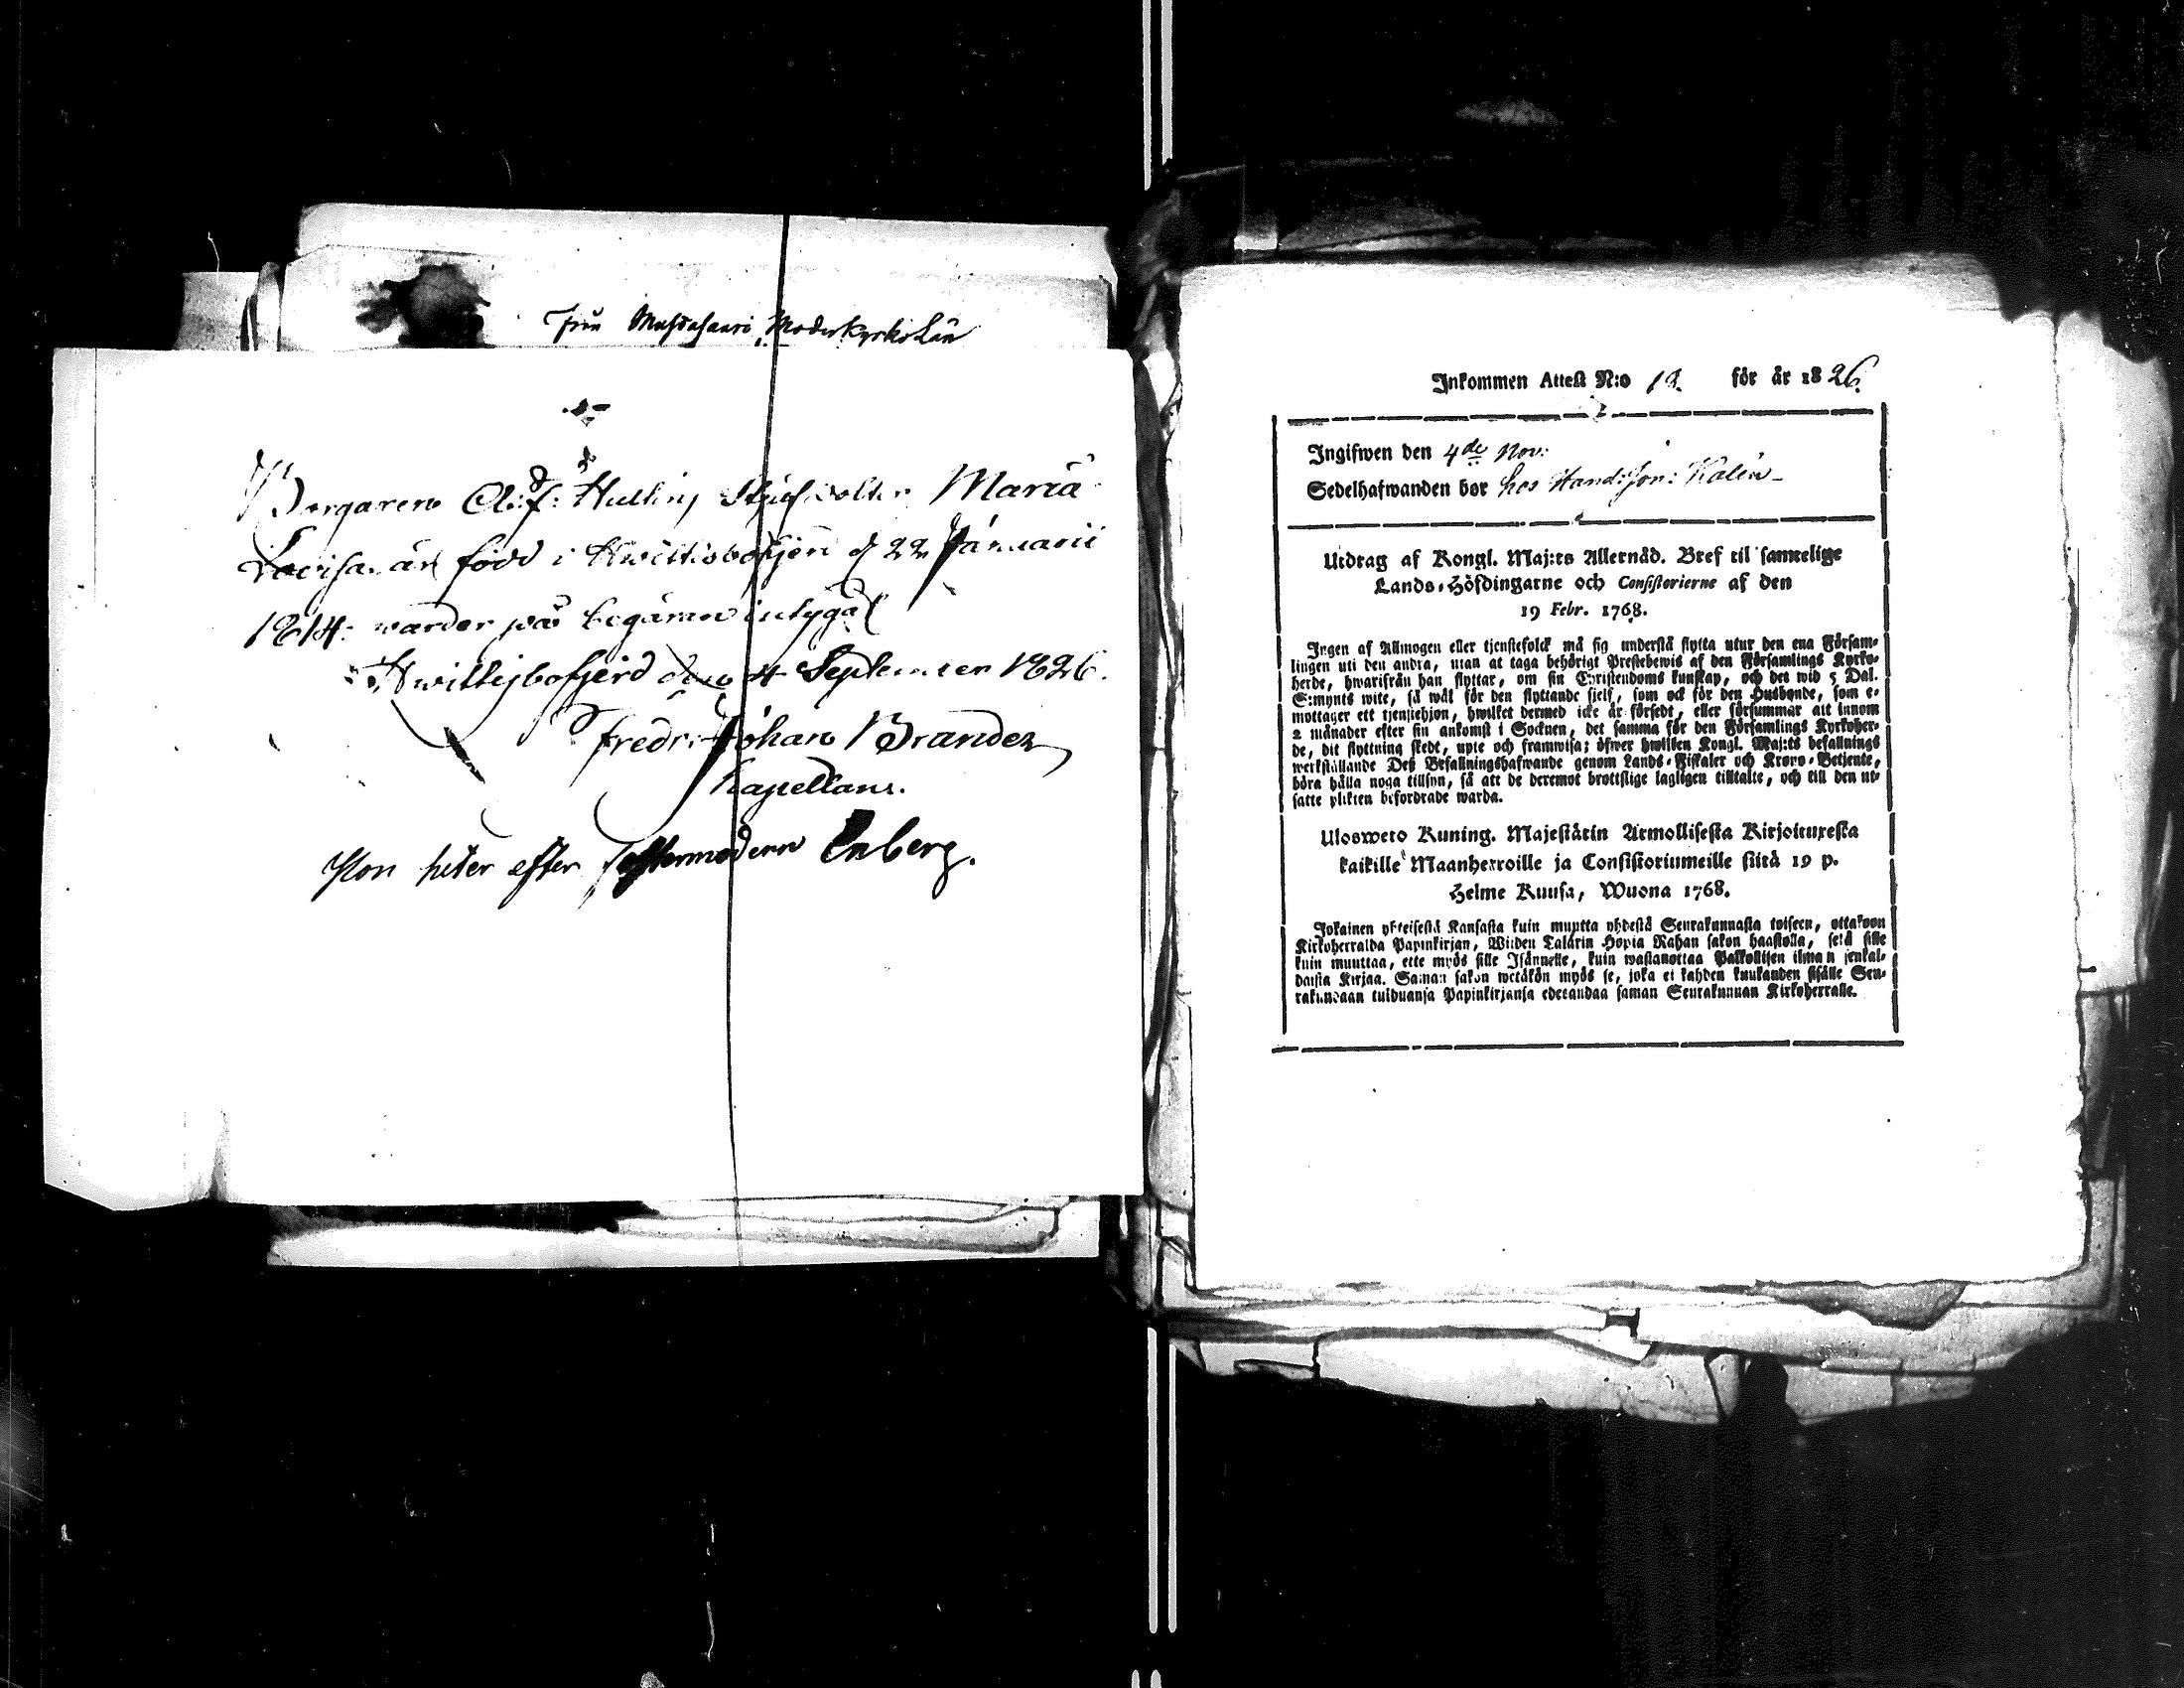 Från Mustasaari Moderkyrko Län
Borgaren Ol:f: Hulling Stjufdotter Maria
Lovisa är född i Hwittisbofjerd d 22 Januarii
1814: warder på begäran intygat
Hwittisbofjerd den 4 September 1826.
Fredr: Johan Brander
Kapellans.
Hon heter efter Enberg.
Inkommen Attest N:o 12. för år 1826.
Ingifwen den 4de Nov:
Sedelhafwanden bor hos Hand:
Utdrag af Kongl. Maj:ts Allernåd. Bref til samtelige
Lands-Höfdingarne och Consistorierne af den
19 Febr. 1768.
Ingen af Allmogen eller tjenstefolck må sig understå flytta utur den ena Försam-
lingen uti den andra, utan at taga behörigt Prestebewis af den Församlings Kyrko-
herde, hwarifrån han flyttar, om sin Christendoms kunskap, och det wid 5 Dal.
S:mynts wite, så wäl för den flyttande sjelf, som ock för den Husbonde, som e-
mottager ett tjenstehjon, hwilket dermed icke är försedt, eller försummar att innom
2 månader efter sin ankomst i Socknen, det samma för den Församlings Kyrkoher-
de, dit flyttning skedt, upte och framwisa; öfwer hwilken Kongl. Maj:ts befallnings
werkställande Deß Befallningshafwande genom Lands-Fiskaler och Krono-Betjente,
böra hålla noga tillsyn, så att de deremot brottslige lagligen tilltalte, och till den ut-
satte plikten befordrade warda.
Ulosweto Kuning. Majestätin Armollisesta Kirjoituxesta
kaikille Maanherroille ja Consistoriumeille siitä 19 p.
Helme Kuusa, Wuona 1768.
Jokainen yhteisestä Kansasta kuin muutta yhdestä Seurakunnasta toiseen, ottakoon
Kirkoherralda Papinkirjan, Wijden Talarin Hopia Rahan sakon haastolla, sekä sille
kuin muuttaa, ette myös sille Isännelle, kuin wastanottaa Palkollisen ilman senkal-
daista Kirjaa. Saman sakon wetäkön myös se, joka ei kahden kuukauden sisälle Seu-
rakundaan tulduansa Papinkirjansa edesandaa saman Seurakunnan Kirkoherralle.